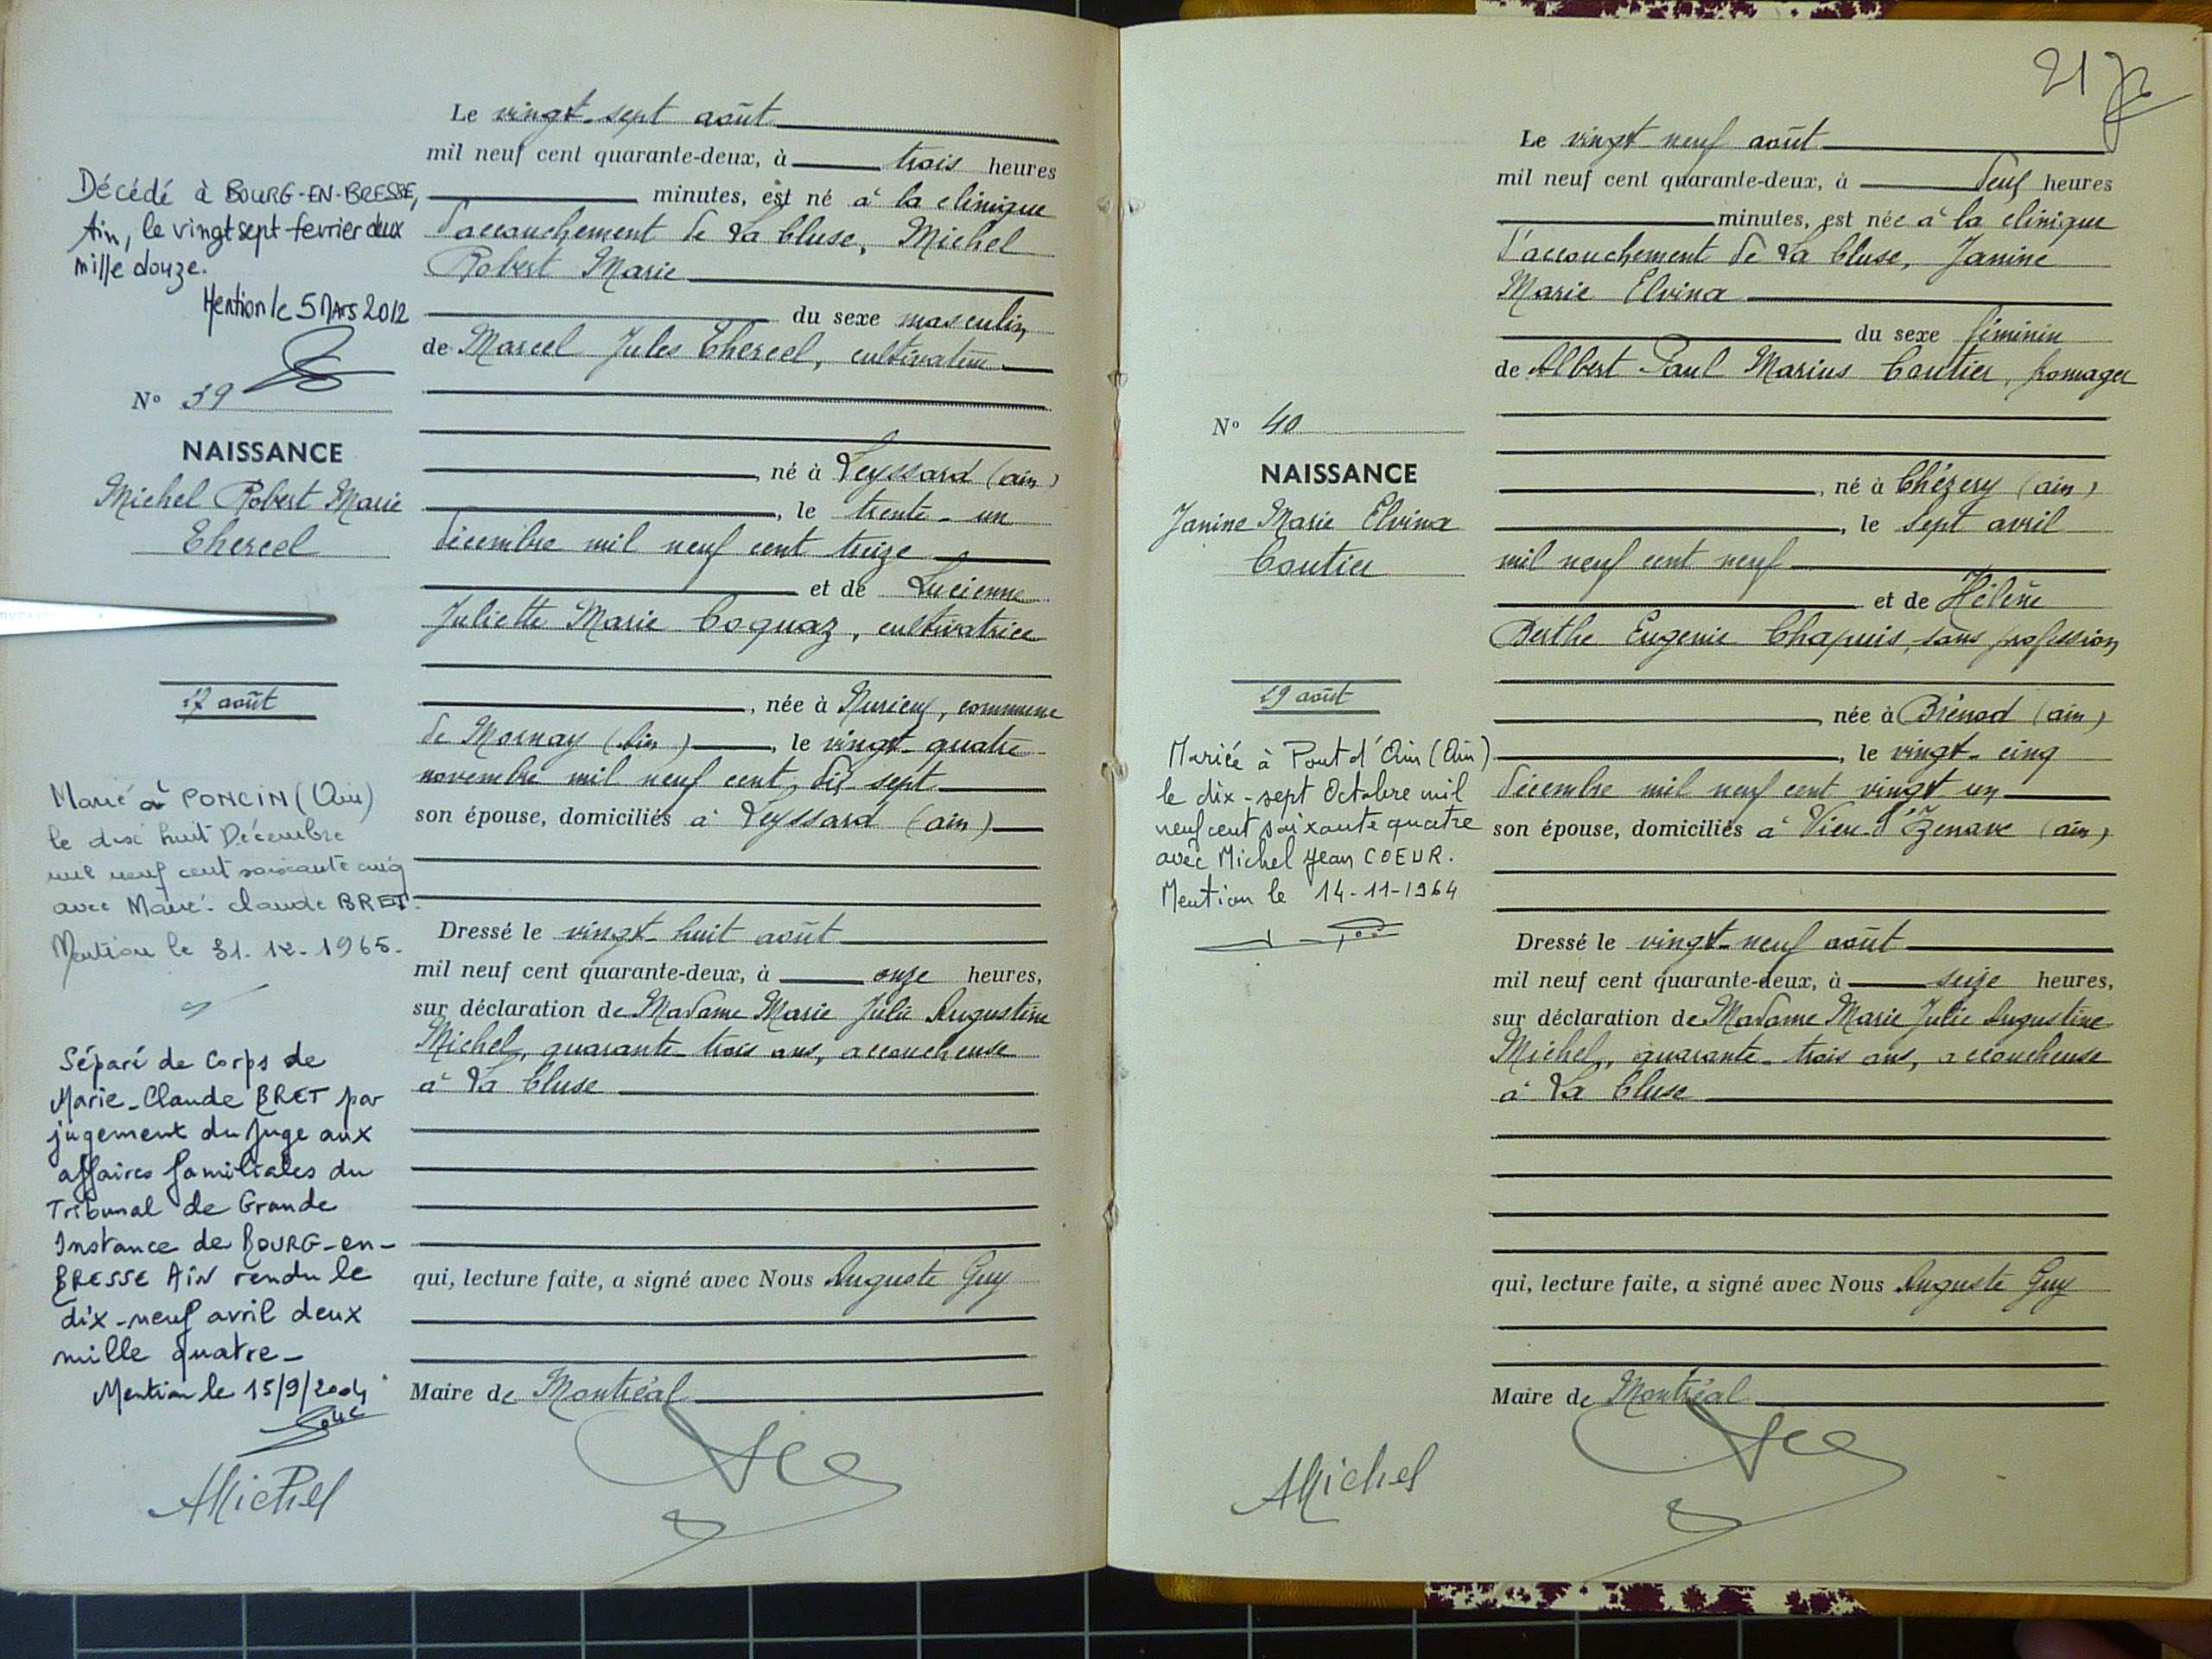 Le vingt-sept août
mil neuf cent quarante-deux, à trois heures
minutes, est né à la clinique
d'accouchement de La Cluse, Michel
Robert Marie
du sexe masculin
de Marcel Jules Chercel, cultivateur
né à Leyssard (ain)
, le trente-un
décembre mil neuf cent treize
et de Lucienne
Juliette Marie Coquaz, cultivatrice
, née à Nurieux, commune
de Mornay (Ain), le vingt-quatre
novembre mil neuf cent dix sept
son épouse, domiciliés à Leyssard (ain)
Dressé le vingt-huit août
mil neuf cent quarante-deux, à onze heures,
sur déclaration de Madame Marie Julie Augustine
Michel, quarante-trois ans, accoucheuse
à La Cluse
qui, lecture faite, a signé avec Nous Auguste Guy
Maire de Montréal
Décédé à BOURG-EN-BRESSE,
Ain, le vingt sept fevrier deux
mille douze.
Mention le 5 MARS 2012
N° 39
NAISSANCE
Michel Robert Marie
Chercel
27 août
Marié à PONCIN (Ain)
le dix huit Décembre
mil neuf cent soixante cinq
avec Marie-claude BRET.
Mention le 31.12.1965.
Séparé de Corps de
Marie-Claude BRET par
jugement du Juge aux
affaires familiales du
Tribunal de Grande
Instance de BOURG-en-
BRESSE AiN rendu le
dix-neuf avril deux
mille quatre-
Mention le 15/9/2004
AMichel
21
Le vingt neuf août
mil neuf cent quarante-deux, à neuf heures
minutes, est née à la clinique
d'accouchement de La Cluse, Janine
Marie Elvina
du sexe féminin
de Albert Paul Marius Coutier, fromager
, né à Chézery (ain)
, le sept avril
mil neuf cent neuf
et de Hélène
Berthe Eugenie Chapuis, sans profession
, née à Brénod (ain)
, le vingt-cinq
décembre mil neuf cent vingt un
son épouse, domiciliés à Vieu d'Izenave (ain)
Dressé le vingt-neuf août
mil neuf cent quarante-deux, à seize heures,
sur déclaration de Madame Marie Julie Augustine
Michel, quarante-trois ans, accoucheuse
à La Cluse
qui, lecture faite, a signé avec Nous Auguste Guy
Maire de Montréal
N° 40
NAISSANCE
Janine Marie Elvina
Coutier
29 août
Mariée à Pont d'Ain (Ain)
le dix-sept Octobre mil
neuf cent soixante quatre
avec Michel Jean COEUR.
Mention le 14-11-1964
AMichel